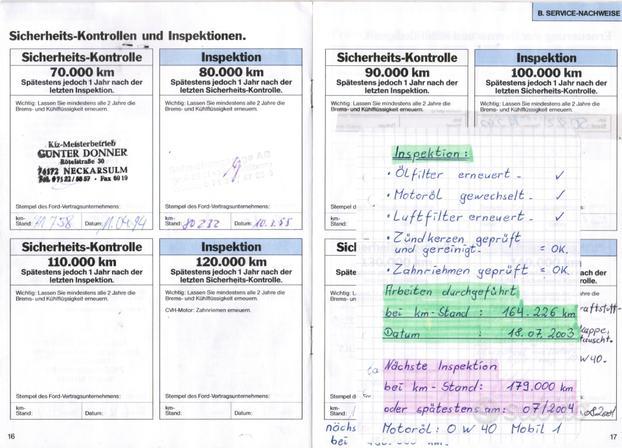 B. SERVICE-NACHWEISE
Sicherheits-Kontrollen und Inspektionen.
Sicherheits-Kontrolle
70.000 km
Spätestens jedoch 1 Jahr nach der
letzten Inspektion.
Wichtig: Lassen Sie mindestens alle 2 Jahre die
Brems- und Kühlflüssigkeit erneuern.
Kfz-Meisterbetrieb
GÜNTER DONNER
Rötelstraße 30
74172 NECKARSULM
Stempel des Ford-Vertragsunternehmens:
km-
Stand: 71758 Datum: 11.04.94
Inspektion
80.000 km
Spätestens jedoch 1 Jahr nach der
letzten Sicherheits-Kontrolle.
Wichtig: Lassen Sie mindestens alle 2 Jahre die
Brems- und Kühlflüssigkeit erneuern.
Stempel des Ford-Vertragsunternehmens:
km-
Stand: 80232 Datum:
Sicherheits-Kontrolle
110.000 km
Spätestens jedoch 1 Jahr nach der
letzten Inspektion.
Wichtig: Lassen Sie mindestens alle 2 Jahre die
Brems- und Kühlflüssigkeit erneuern.
Stempel des Ford-Vertragsunternehmens:
km-
Stand: Datum:
Inspektion
120.000 km
Spätestens jedoch 1 Jahr nach der
letzten Sicherheits-Kontrolle.
Wichtig: Lassen Sie mindestens alle 2 Jahre die
Brems- und Kühlflüssigkeit erneuern.
CVH-Motor: Zahnriemen erneuern.
Stempel des Ford-Vertragsunternehmens:
km-
Stand: Datum:
16
Sicherheits-Kontrolle
90.000 km
Spätestens jedoch 1 Jahr nach der
letzten Inspektion.
Wichtig: Lassen Sie mindestens alle 2 Jahre die
Brems- und Kühlflüssigkeit erneuern.
Inspektion
100.000 km
Spätestens jedoch 1 Jahr nach der
letzten Sicherheits-Kontrolle.
Wichtig: Lassen Sie mindestens alle 2 Jahre die
Brems- und Kühlflüssigkeit erneuern.
Inspektion:
• Ölfilter erneuert - ✓
• Motoröl gewechselt - ✓
• Luftfilter erneuert - ✓
• Zündkerzen geprüft
und gereinigt. = OK.
• Zahnriemen geprüft = OK.
Arbeiten durchgeführt
bei km-Stand: 164.226 km
Datum: 18.07.2003
Nächste Inspektion
bei km-Stand: 179.000 km
oder spätestens am: 07/2004
Motoröl: 0 W 40 Mobil 1
nächs
bei
Stempel d
km-
Stand:
17